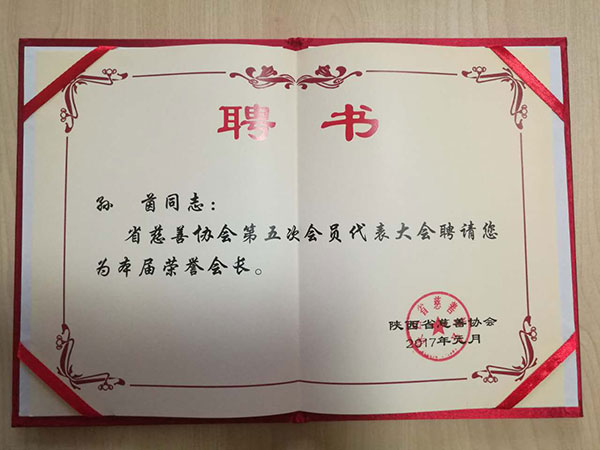 聘书
孙茵同志：
省慈善协会第五次会员代表大会聘请您
为本届荣誉会长。
陕西省慈善协会
2017年元月